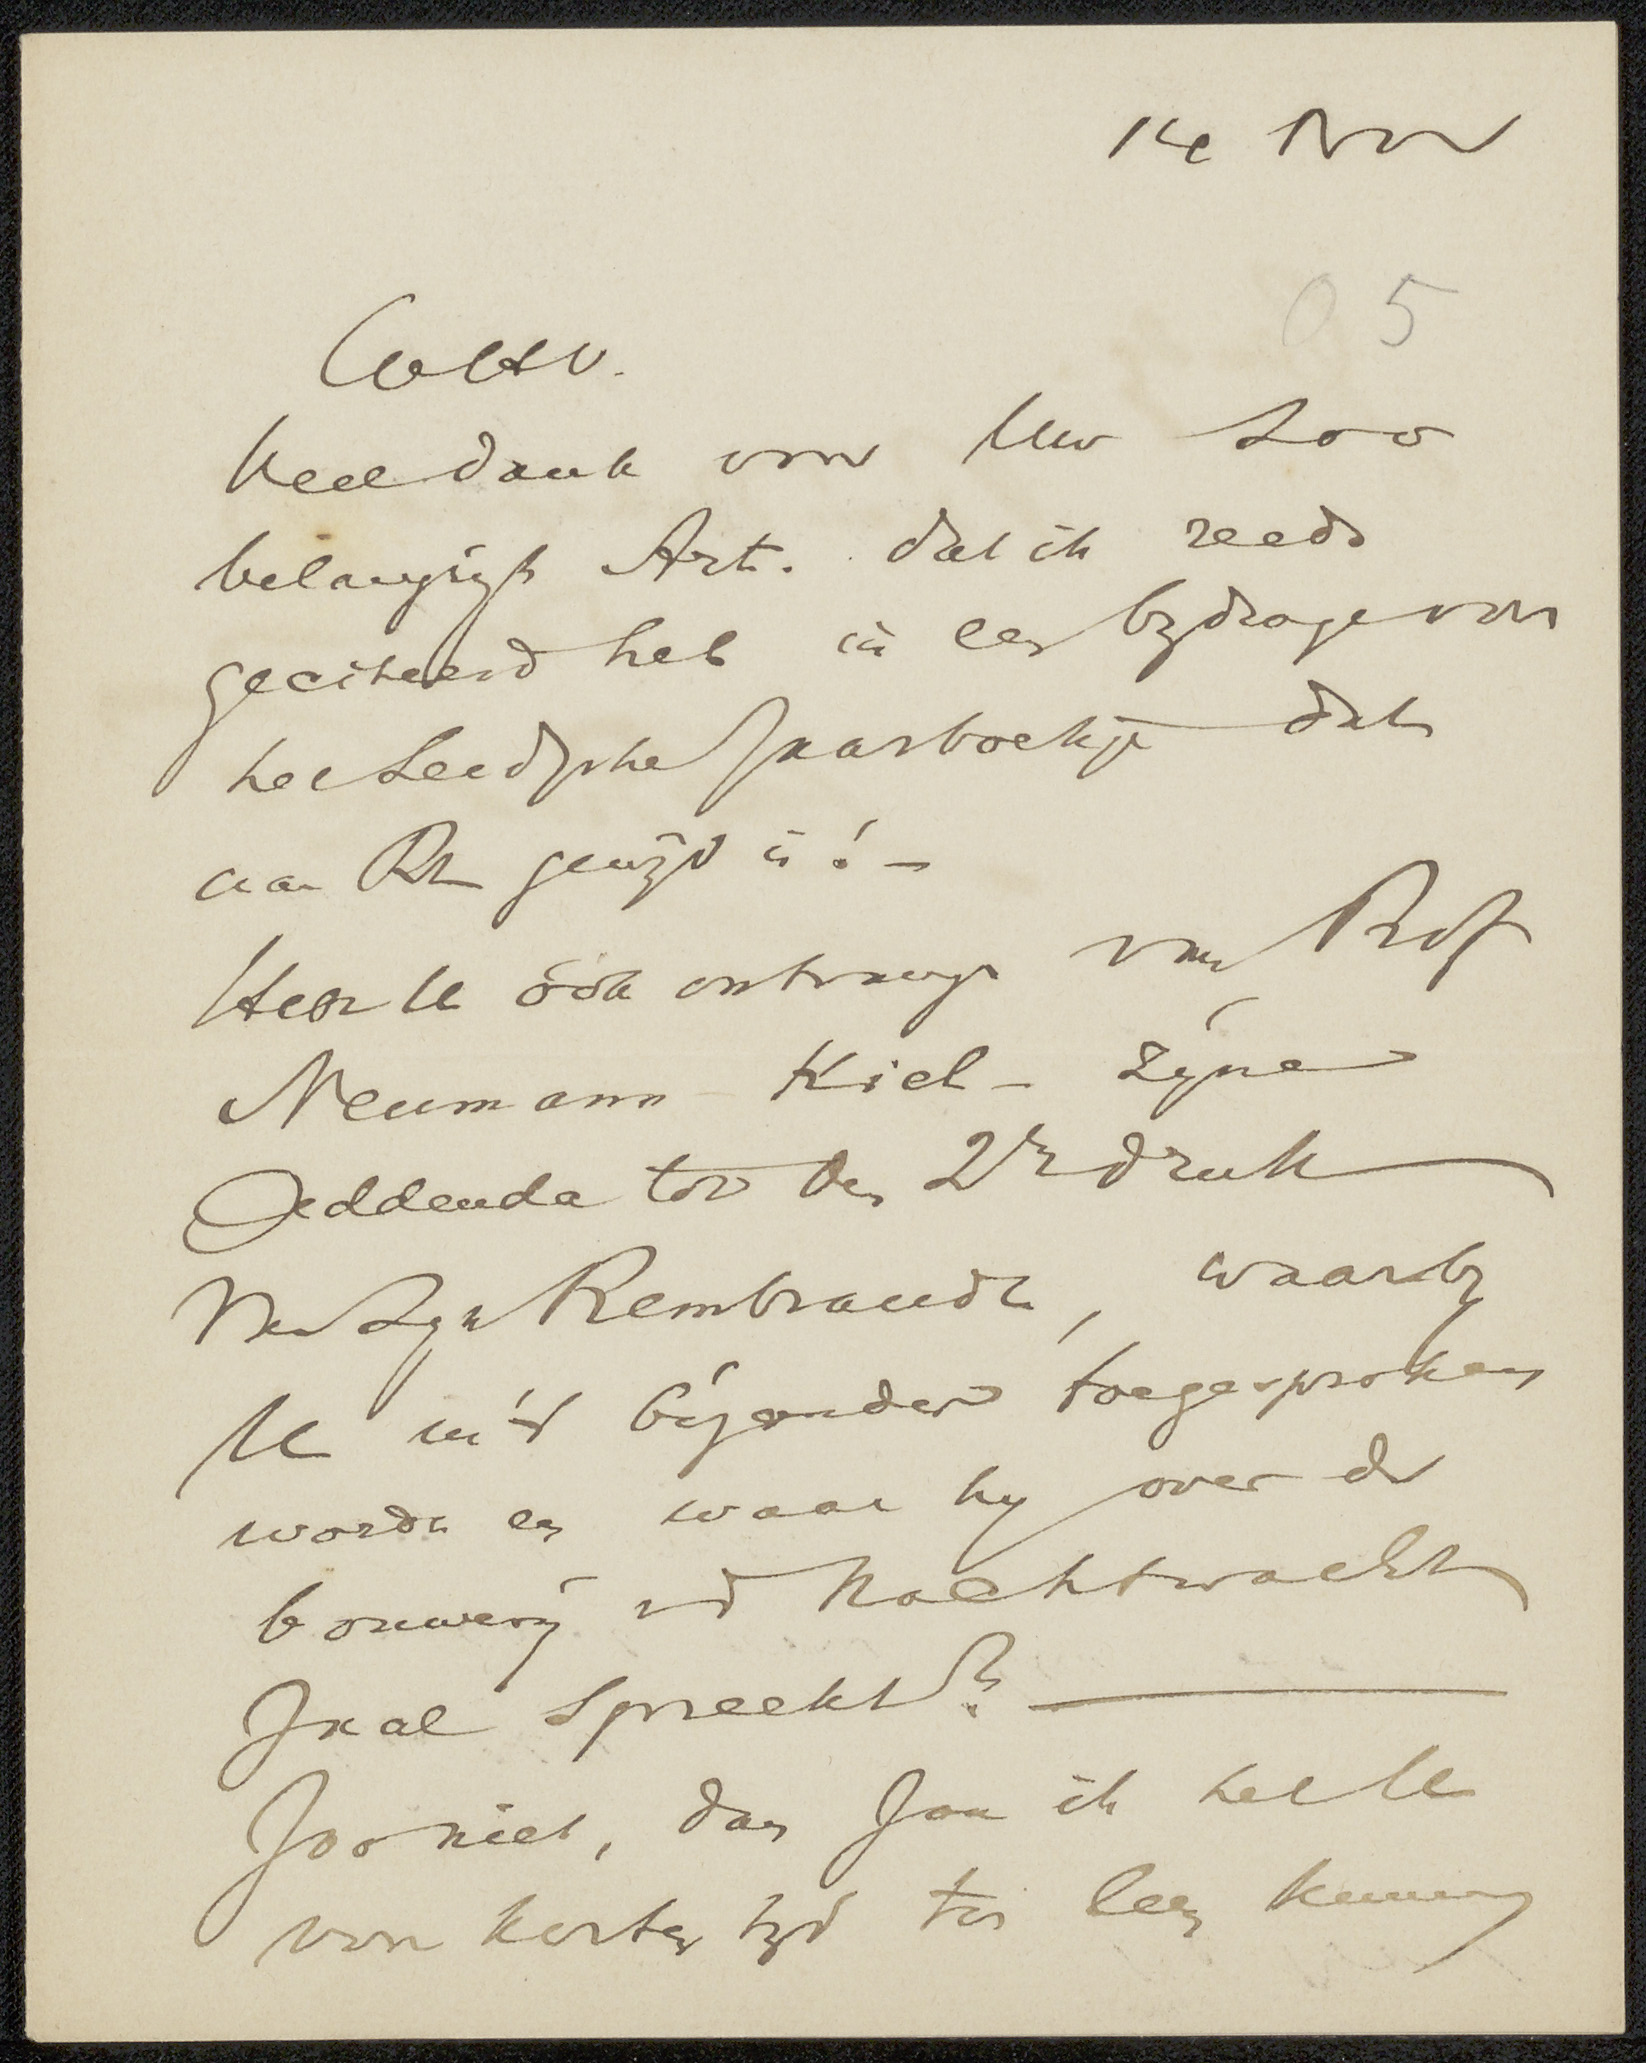 14 Nov
05
Veel dank voor Uw zoo
belangrijk Art. dat ik reeds
geciteerd heb in een bijdrage voor
het Leidsche Jaarboekje dat
aan Rt gewijd is! –
Heeft U óók ontvangen van Prof
Neumann – Kiel – zijne
Addenda tot den 2en druk
van Zijn Rembrandt, waarbij
U in 't bijzonder toegesproken
wordt en waar hij over de
bouwerij v d Nachtwacht
Zaal spreekt?
Zoo niet, dan zou ik het U
voor korten tijd ter leen kunnen